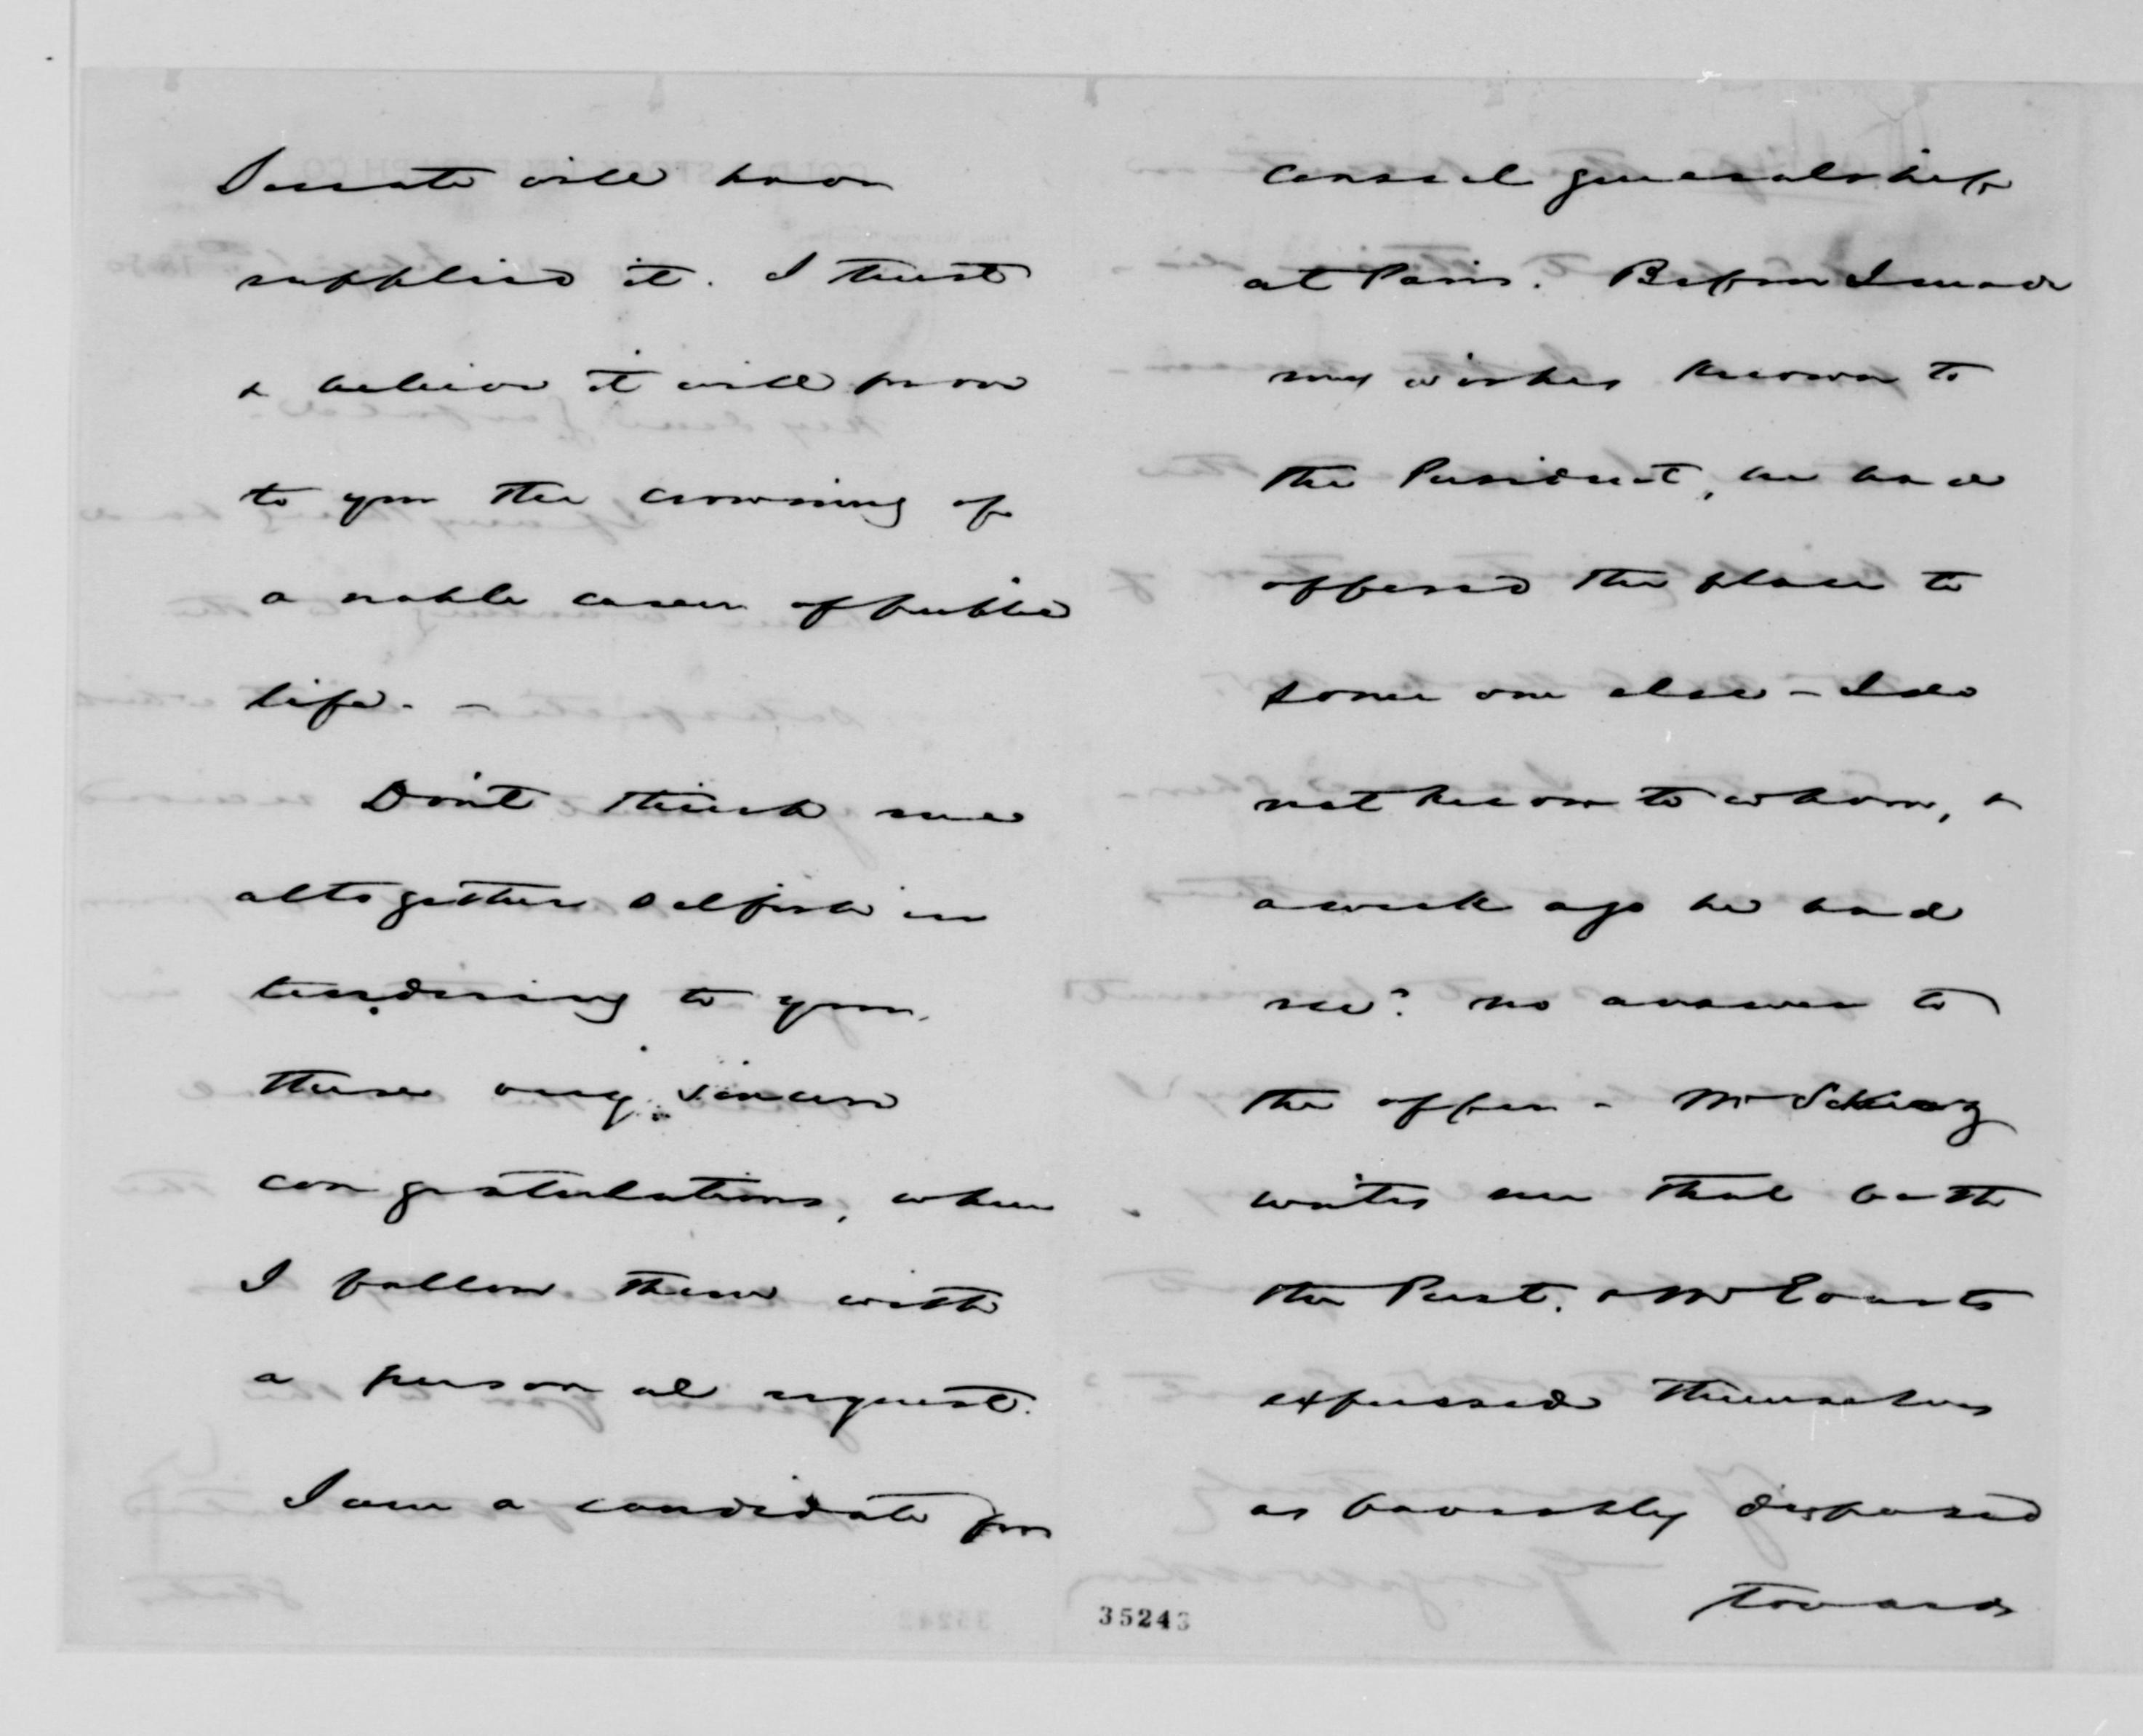 Senate will have
supplied it. I trust
& believe it will prove
to you the crowning of
a noble career of public
life. -
Don't think me
altogether selfish in
tendering to you
these my sincere
congratulations, when
I follow them with
a personal request.
I am a candidate for
Consul generalship
at Paris. Before I made
my wishes known to
the President, he had
offered the place to
some one else - I do
not know to whom, &
a week ago he had
recd. no answer to
the offer - Mr Schurz
writes me that both
the Prest. & Mr Evarts
expressed themselves
as favorably disposed
towards
35243